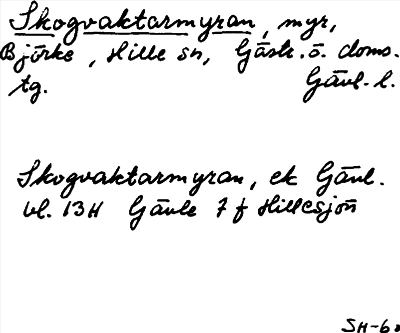 Skogvaktarmyran, myr,
Björke, Hille sn, Gästr. ö. doms.
tg. Gävl. l.
Skogvaktarmyran, ek Gävl.
bl. 13H Gävle 7 f Hillesjön
SH-62